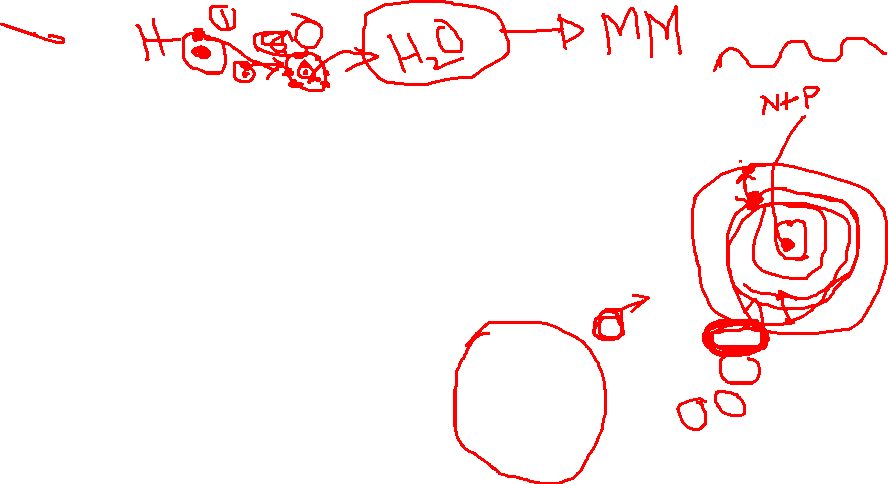 H H₂O MM
N+P